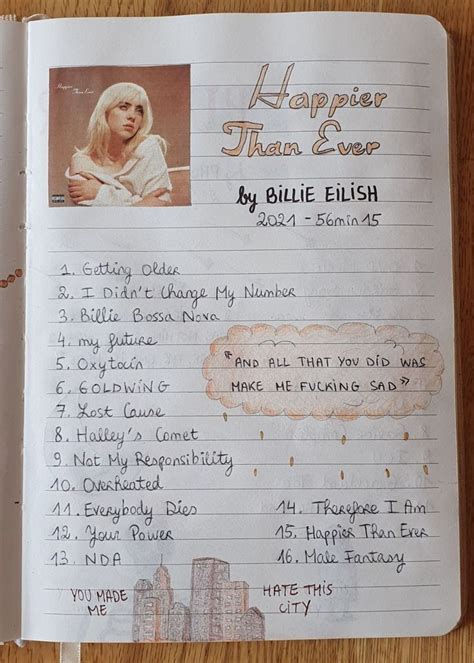 Happier
Than Ever
Happier
Than Ever
by BILLIE EILISH
2021 - 56min15
1. Getting Older
2. I Didn't Change My Number
3. Billie Bossa Nova
4. my future
5. Oxytocin
6. GOLDWING
7. Lost Cause
8. Halley's Comet
9. Not My Responsibility
10. Overheated
11. Everybody Dies
12. Your Power
13. NDA
14. Therefore I Am
15. Happier Than Ever
16. Male Fantasy
"AND ALL THAT YOU DID WAS
MAKE ME FUCKING SAD"
YOU MADE
ME
HATE THIS
CITY